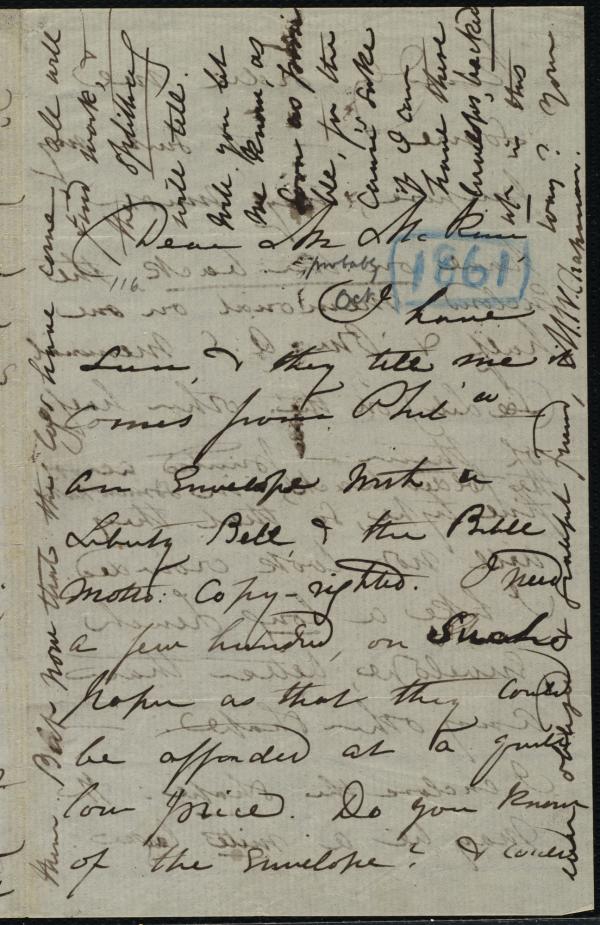 Dear Mr McKim,
116.
probably
Oct.
1861
I have
seen, & they tell me it
comes from Phila
an Envelope with a
Liberty Bell, & the Bible
motto. Copy-righted. I need
a few hundred, on such
paper as that they could
be afforded at a quite
low price. Do you know
of the Envelope? & could
Will you let
me know, as
soon as possi
ble, for the
Cause's sake
if I can
have these
Envelopes, backed
up in this
way? Your
ever obliged & grateful friend,
M. W. Chapman.
them Bass now that this war has come all will
find work, &
the
will tell.